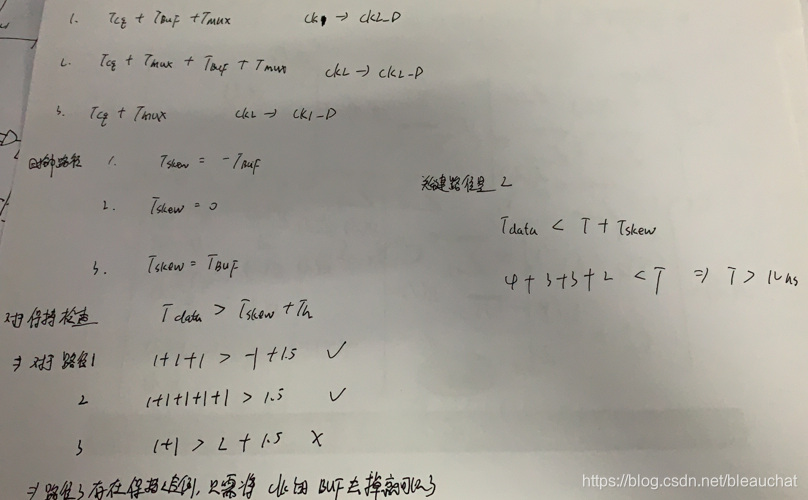 1. Tcq + TBuf + Tmux ck1 → ck2_D
2. Tcq + Tmux + TBuf + Tmux ck2 → ck2_D
3. Tcq + Tmux ck2 → ck1_D
时钟路径 1. Tskew = -TBuf
2. Tskew = 0
3. Tskew = TBuf
关键路径是 2
Tdata < T + Tskew
4+3+3+2 < T ⇒ T > 12ns
对于保持检查 Tdata > Tskew + Th
⇒ 对于路径1 1+1+1 > -1+1.5 ✓
2 1+1+1+1+1 > 1.5 ✓
3 1+1 > 2+1.5 ×
⇒ 路径3存在保持违例，只需将 clk 的 BUF去掉即可
https://blog.csdn.net/bleauchat